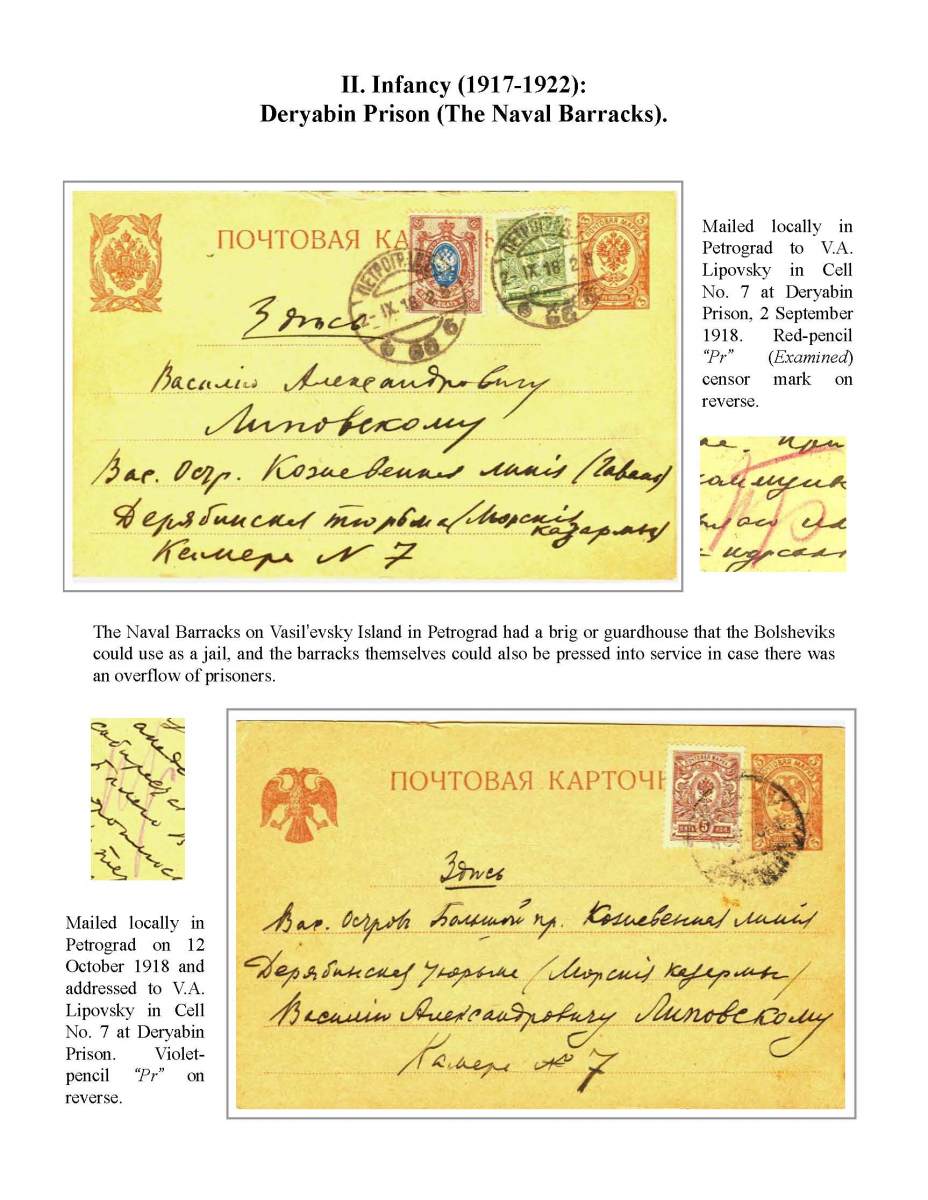 II. Infancy (1917-1922):
Deryabin Prison (The Naval Barracks).
ПОЧТОВАЯ КА
ПЕТРОГРАД
2-IX.18
ПЕТРОГРАД
2-IX.18
Здѣсь
Василію Александровичу
Липовскому
Вас. Остр. Кожевенная линія (Гавань)
Дерябинская тюрьма (Морскія
казармы)
Камера N 7
Mailed locally in
Petrograd to V.A.
Lipovsky in Cell
No. 7 at Deryabin
Prison, 2 September
1918. Red-pencil
“Pr” (Examined)
censor mark on
reverse.
The Naval Barracks on Vasil'evsky Island in Petrograd had a brig or guardhouse that the Bolsheviks
could use as a jail, and the barracks themselves could also be pressed into service in case there was
an overflow of prisoners.
Mailed locally in
Petrograd on 12
October 1918 and
addressed to V.A.
Lipovsky in Cell
No. 7 at Deryabin
Prison. Violet-
pencil “Pr” on
reverse.
ПОЧТОВАЯ КАРТОЧ
5
Здѣсь
Вас. Островъ Большой пр. Кожевенная линія
Дерябинская тюрьма (Морскія казармы)
Василію Александровичу Липовскому
Камера № 7